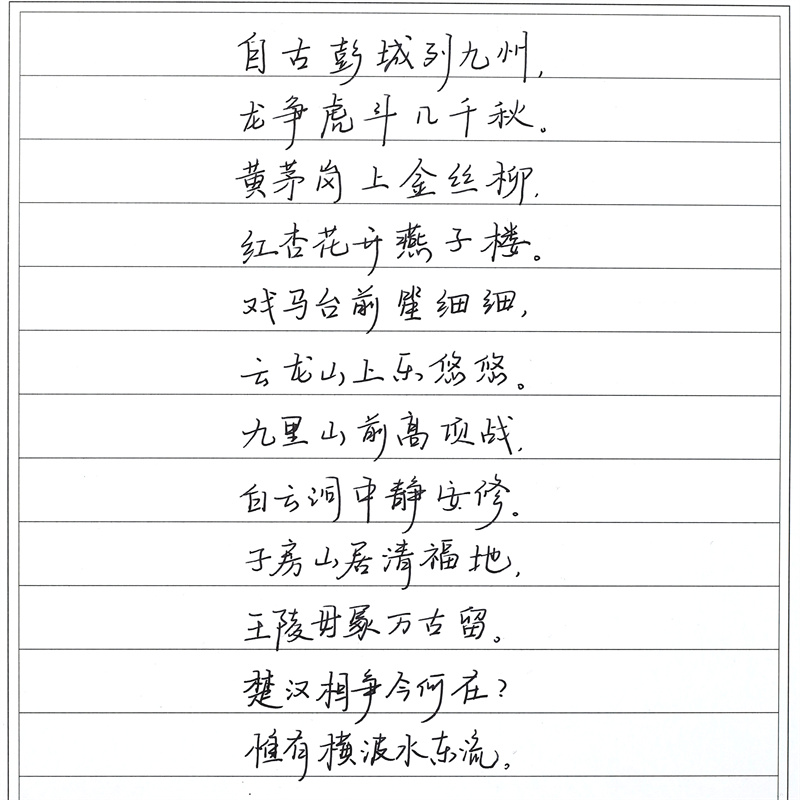 自古彭城列九州,
龙争虎斗几千秋。
黄茅岗上金丝柳,
红杏花开燕子楼。
戏马台前星细细,
云龙山上乐悠悠。
九里山前高项战,
白云洞中静安修。
子房山居清福地,
王陵母冢万古留。
楚汉相争今何在?
惟有横波水东流。